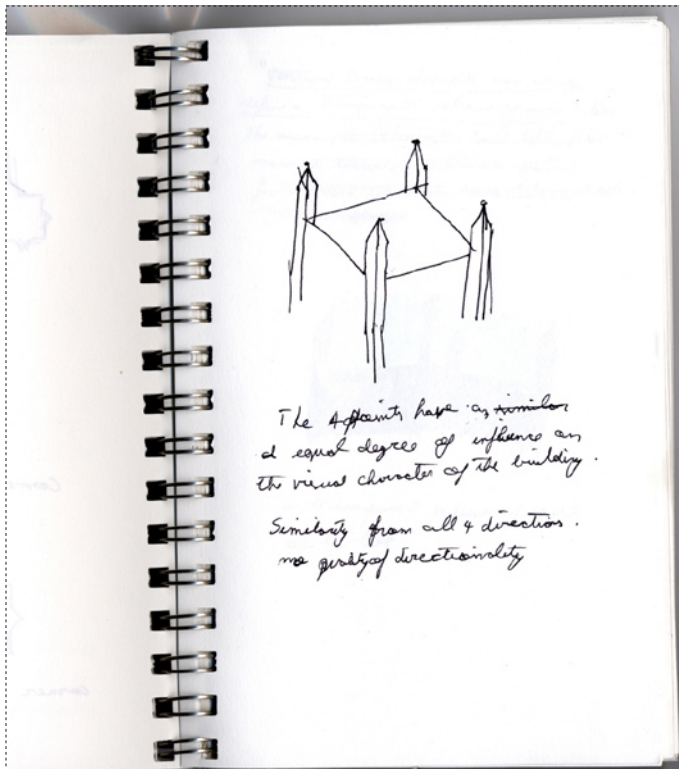 The 4 points have as similar
d equal degree of influence on
the visual character of the building.
Similarity from all 4 direction.
no quality of directionality
corner